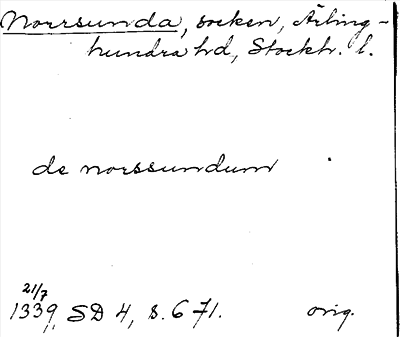 Norrsunda, socken, Ärling-
hundra hd, Stockh. l.
de norssundum
21/7
1339, SD 4, s. 671. orig.